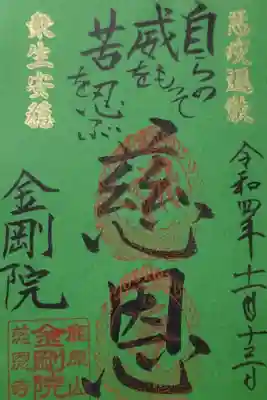 悪疫退散
自らの
威をもって
苦を忍ぶ
衆生安穏
令和四年十一月十三日
慈恩
金剛院
金剛院
慈恩寺